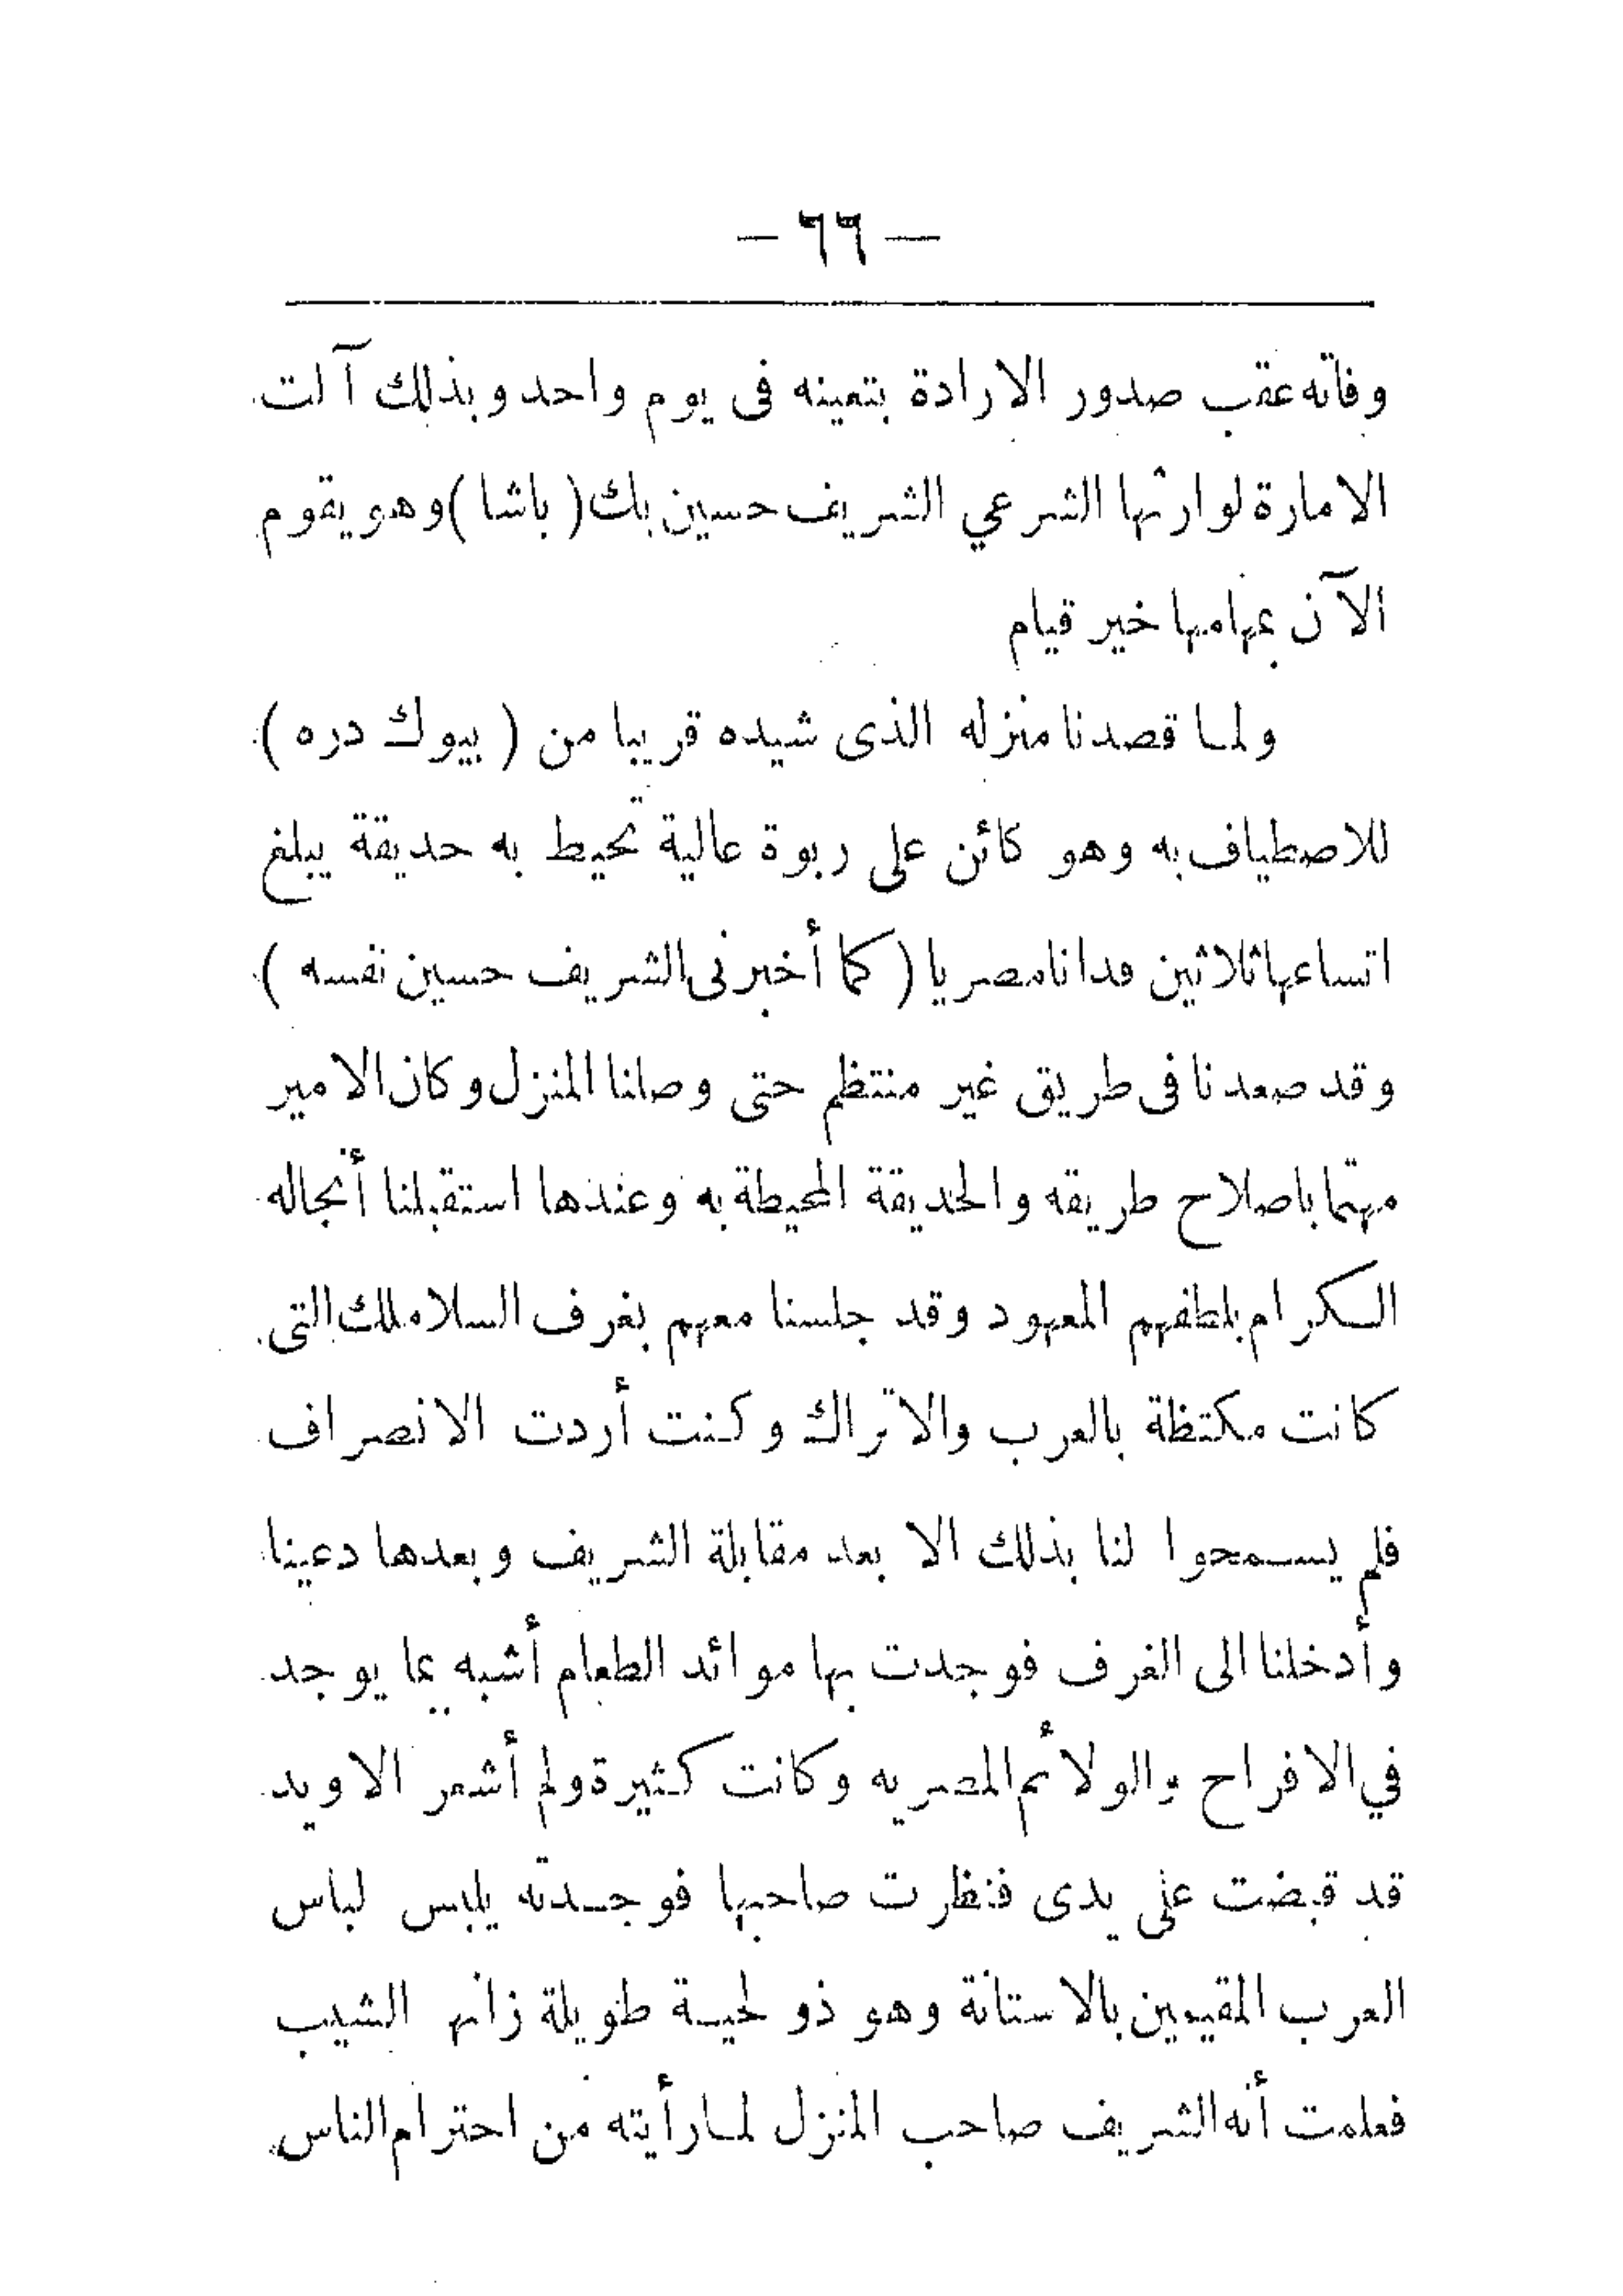 — ٦٦ —
وفاته عقب صدور الارادة بتعينه فى يوم واحد وبذلك آلت
الامارة لوارثها الشرعي الشريف حسين بك ( باشا ) وهو يقوم
الآن بمهامها خير قيام
ولما قصدنا منزله الذى شيده قريبا من ( بيوك دره )
للاصطياف به وهو كائن على ربوة عالية تحيط به حديقة يبلغ
اتساعها ثلاثين فدانا مصريا ( كما أخبرنى الشريف حسين نفسه )
وقد صعدنا فى طريق غير منتظم حتى وصلنا المنزل وكان الامير
مهتما باصلاح طريقه والحديقة المحيطة به وعندها استقبلنا أنجاله
الكرام بلطفهم المعهود وقد جلسنا معهم بغرف السلاملك التى
كانت مكتظة بالعرب والاتراك وكنت أردت الانصراف
فلم يسمحوا لنا بذلك الا بعد مقابلة الشريف وبعدها دعينا
وأدخلنا الى الغرف فوجدت بها موائد الطعام أشبه بما يوجد
في الافراح والولائم المصريه وكانت كثيرة ولم أشعر الا ويد
قد قبضت على يدى فنظرت صاحبها فوجدته يلبس لباس
العرب المقيمين بالاستانة وهو ذو لحية طويلة زانها الشيب
فعلمت أنه الشريف صاحب المنزل لما رأيته من احترام الناس